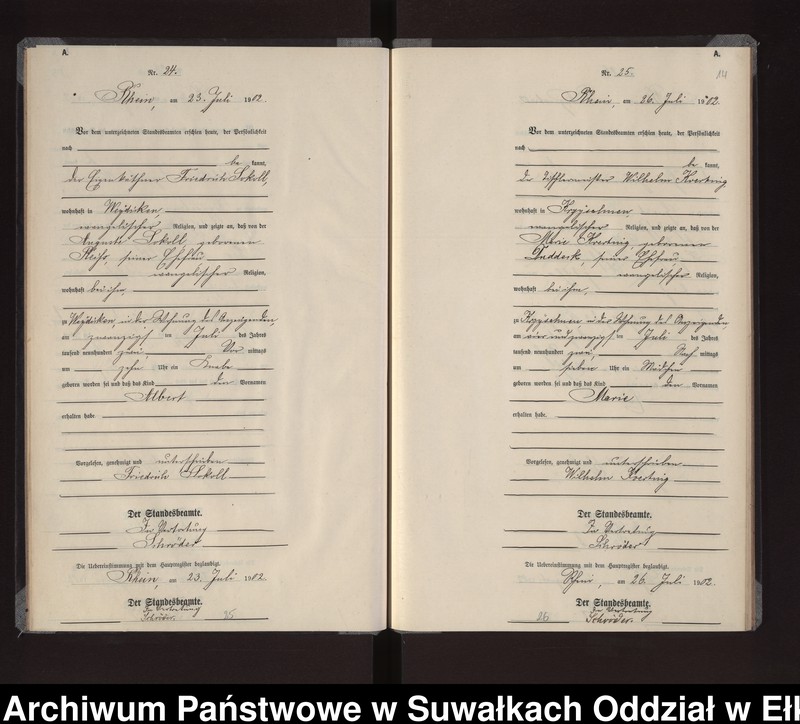 A.
Nr. 24.
Rhein, am 23. Juli 1902.
Vor dem unterzeichneten Standesbeamten erschien heute, der Persönlichkeit
nach
be kannt,
der Eigenkäthner Friedrich Sokoll,
wohnhaft in Weydicken
evangelischer Religion, und zeigte an, daß von der
Auguste Sokoll geborenen
seiner Ehefrau
evangelischer Religion,
wohnhaft bei ihm,
zu Weydicken, in der Wohnung des Anzeigenden,
am zwanzigst en Juli des Jahres
tausend neunhundert zwei, Vor mittags
um zehn Uhr ein Knabe
geboren worden sei und daß das Kind den Vornamen
Albert
erhalten habe.
Vorgelesen, genehmigt und unterschrieben
Friedrich Sokoll
Der Standesbeamte.
In Vertretung
Schröder
Die Uebereinstimmung mit dem Hauptregister beglaubigt.
Rhein, am 23. Juli 1902.
Der Standesbeamte.
In Vertretung
Schröder.
A.
Nr. 25.
Rhein, am 26. Juli 1902.
Vor dem unterzeichneten Standesbeamten erschien heute, der Persönlichkeit
nach
be kannt,
der Tischlermeister Wilhelm
wohnhaft in
evangelischer Religion, und zeigte an, daß von der
Marie geborenen
seiner Ehefrau
evangelischer Religion,
wohnhaft bei ihm,
zu in der Wohnung des Anzeigenden
am vierundzwanzigst en Juli des Jahres
tausend neunhundert zwei, Nach mittags
um sieben Uhr ein Mädchen
geboren worden sei und daß das Kind den Vornamen
Marie
erhalten habe.
Vorgelesen, genehmigt und unterschrieben
Wilhelm
Der Standesbeamte.
In Vertretung
Schröder
Die Uebereinstimmung mit dem Hauptregister beglaubigt.
Rhein, am 26. Juli 1902.
Der Standesbeamte.
In Vertretung
Schröder.
Archiwum Państwowe w Suwałkach Oddział w Eł